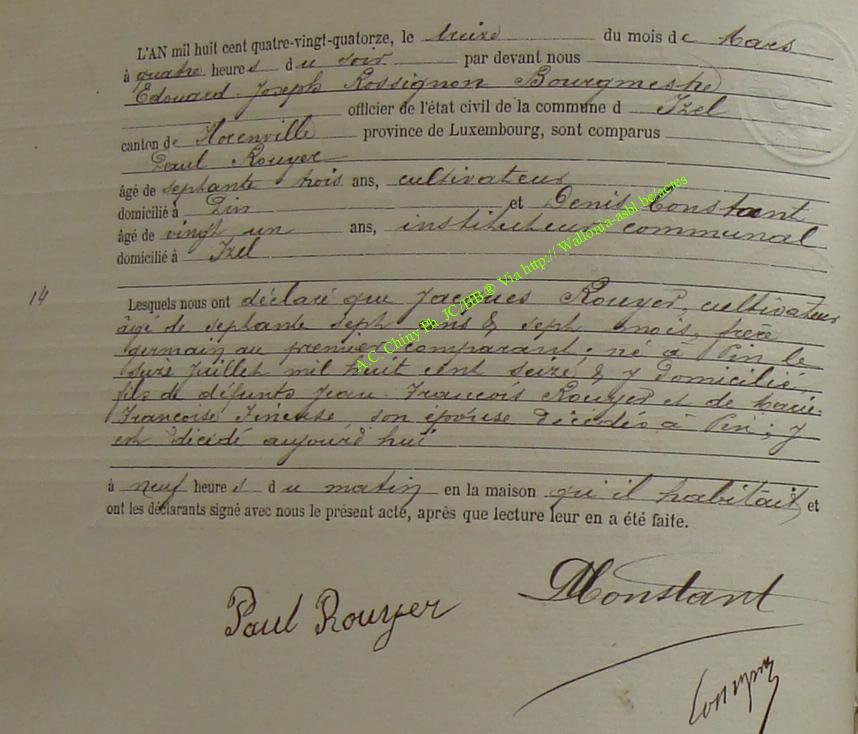 L'AN mil huit cent quatre-vingt-quatorze, le treize du mois de Mars
à quatre heures du soir par devant nous
Edouard Joseph Rossignon Bourgmestre
officier de l'état civil de la commune d Izel
canton de Florenville province de Luxembourg, sont comparus
Paul Rouyer
âgé de septante trois ans, cultivateur
domicilié à Pin et Denis Constant
âgé de vingt un ans, instituteur communal
domicilié à Izel
14
Lesquels nous ont déclaré que Jacques Rouyer, cultivateur
âgé de septante sept ans & sept mois, frère
germain au premier comparant; né à Pin le
Juillet mil huit cent seize & y domicilié
fils de défunts Jean François Rouyer et de Marie
Françoise son épouse décédés à Pin; y
est décédé aujourd'hui
à neuf heures du matin en la maison qu'il habitait, et
ont les déclarants signé avec nous le présent acte, après que lecture leur en a été faite.
A.C. Chiny Ph. JC/HB® Via http:// Wallonia-asbl.be/actes
Paul Rouyer
DConstant